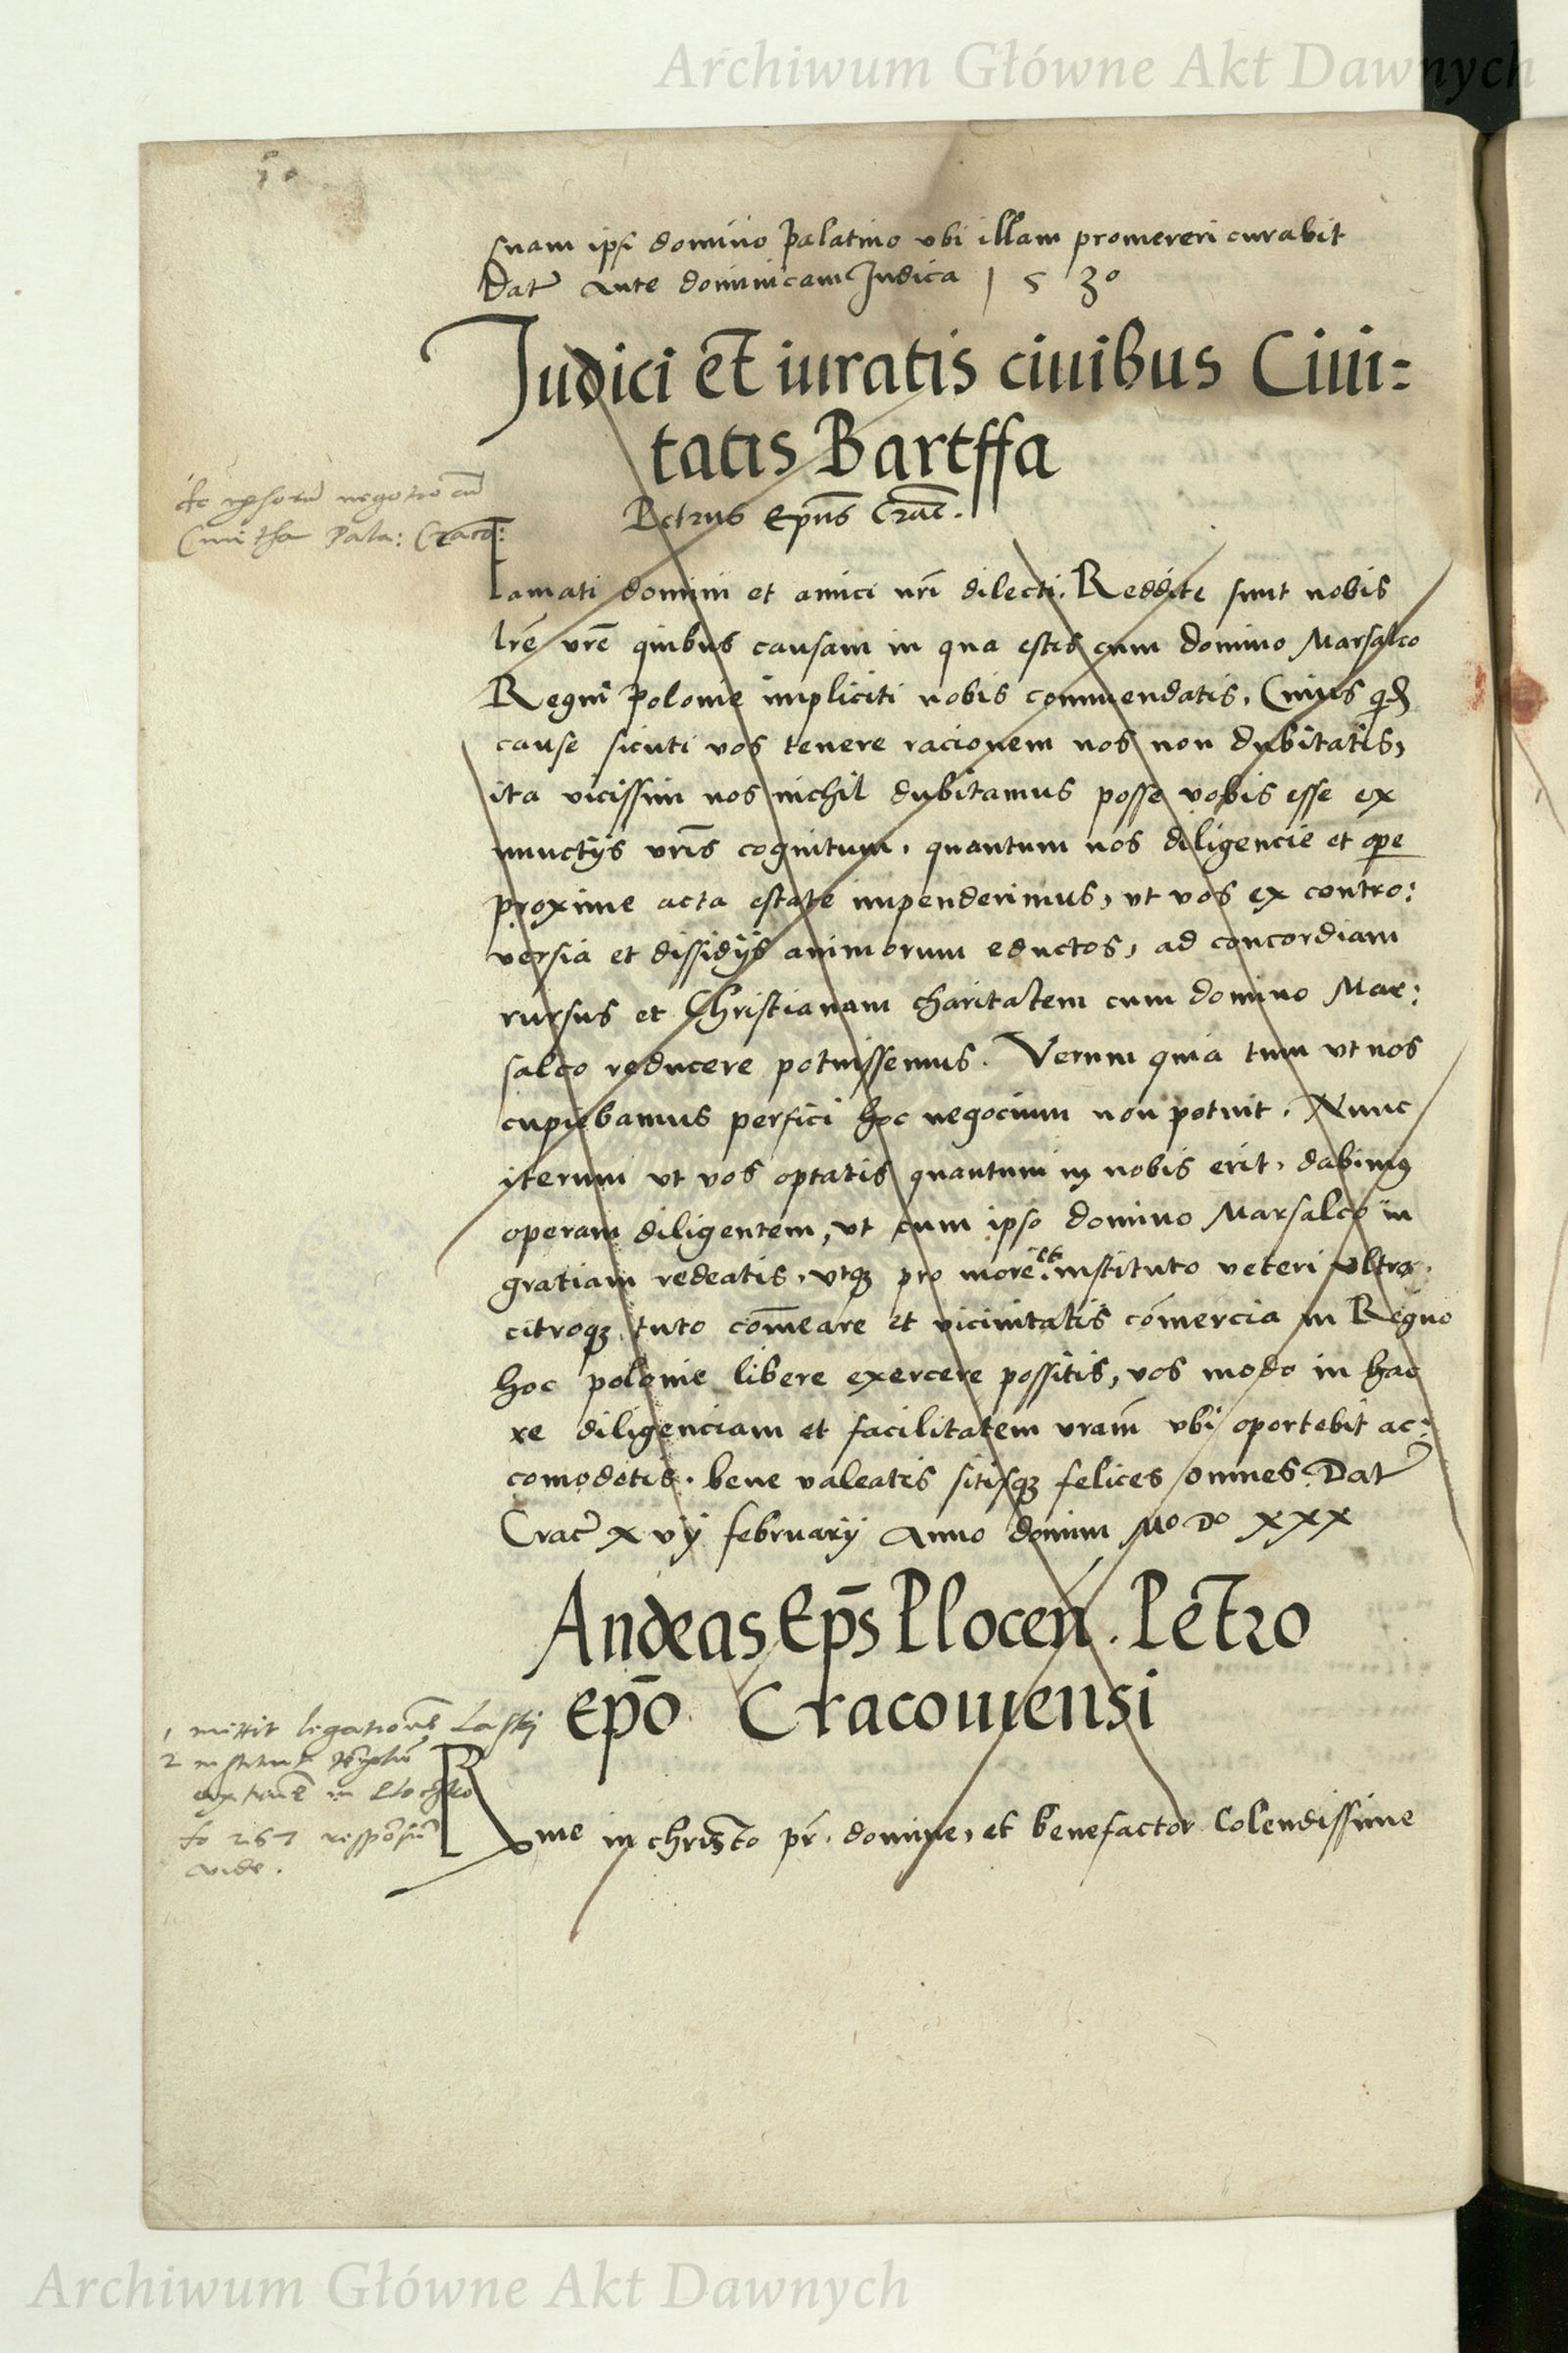 Archiwum Główne Akt Dawnych
suam ipsi domino Palatino vbi illam promereri curabit
Dat ante dominicam Judica 1 5 30
Judici et iuratis ciuibus Ciui=
tatis Bartffa
Petrus Epus Crac.
de negotio cu
Cmitha Pala: Craco:
amati domini et amici nri dilecti. Reddite sunt nobis
lre vre quibus causam in qua estis cum domino Marsalco
Regni Polonie impliciti nobis commendatis. Cuius qd
cause sicuti vos tenere racionem nos non dubitatis,
ita vicissim nos nichil dubitamus posse vobis esse ex
nunctijs vris cognitum, quantum nos diligencie et ope
proxime acta estate impenderimus, vt vos ex contro:
versia et dissidijs animorum eductos, ad concordiam
rursus et Christianam charitatem cum domino Mar:
salco reducere potuissemus. Verum quia tum vt nos
cupiebamus perfici hoc negocium non potuit. Nunc
iterum vt vos optatis quantum in nobis erit, dabimus
operam diligentem, vt cum ipso domino Marsalco in
gratiam redeatis, vtq pro more et instituto veteri vltro
citroq tuto comeare et vicinitatis comercia in Regno
hoc polonie libere exercere possitis, vos modo in hac
re diligenciam et facilitatem vram vbi oportebit ac:
comodetis. bene valeatis sitisq felices omnes. Dat
Crac xvij februarij Anno domini Mo Do xxx
Andeas Eps Plocen. Petro
epo Cracouiensi
1 mittit legationes Laskj
2
in
fo 267 responsu
vide.
Rme in christo pr. domine, et benefactor Colendissime
Archiwum Główne Akt Dawnych